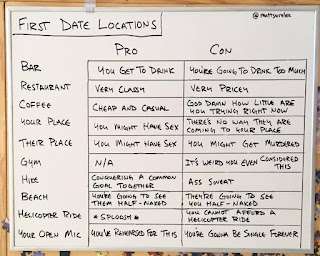 First Date Locations
@mattsurelee
Pro Con
Bar You Get To Drink You're Going To Drink Too Much
Restaurant Very Classy Very Pricey
Coffee Cheap and Casual God Damn How Little Are
You Trying Right Now
Your Place You Might Have Sex There's No Way They Are
Coming To Your Place
Their Place You Might Have Sex You Might Get Murdered
Gym N/A It's Weird You Even Considered
This
Hike Conquering A Common
Goal Together Ass Sweat
Beach You're Going To See
Them Half-Naked They're Going To See
You Half-Naked
Helicopter Ride *Sploosh* You Cannot Afford A
Helicopter Ride
Your Open Mic You've Rehearsed For This You're Gonna Be Single Forever